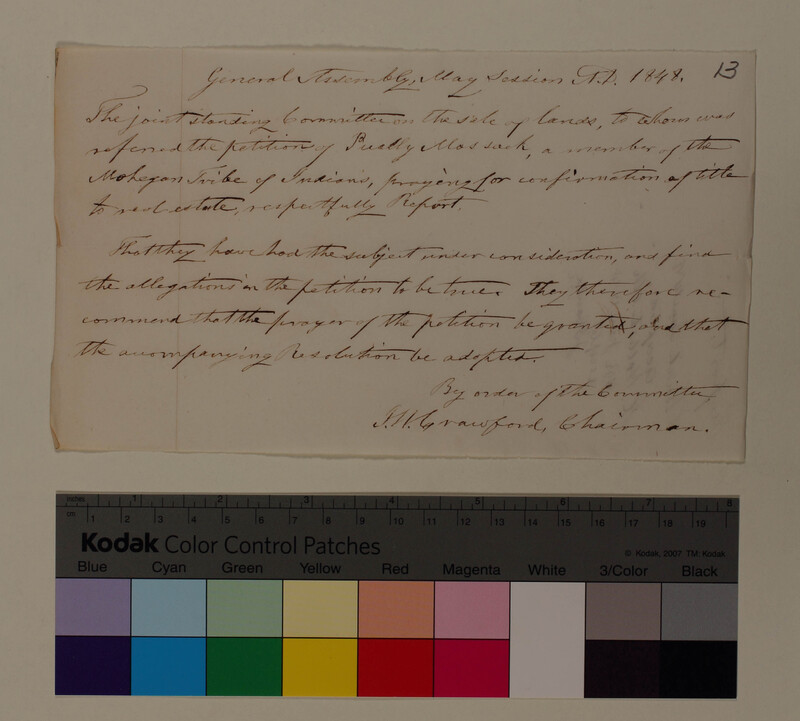 13
General Assembly, May Session A.D. 1848.
The joint standing Committee on the sale of lands, to whom was
referred the petition of Mossuck, a member of the
Mohegan Tribe of Indians, praying for confirmation of title
to real estate, respectfully Report.
That they have had the subject under consideration, and find
the allegations in the petition to be true. They therefore re-
commend that the prayer of the petition be granted, and that
the accompanying Resolution be adopted.
By order of the Committee,
J.W. Crawford, Chairman.
inches 1 2 3 4 5 6 7 8
cm 1 2 3 4 5 6 7 8 9 10 11 12 13 14 15 16 17 18 19
Kodak Color Control Patches
© Kodak, 2007 TM: Kodak
Blue Cyan Green Yellow Red Magenta White 3/Color Black